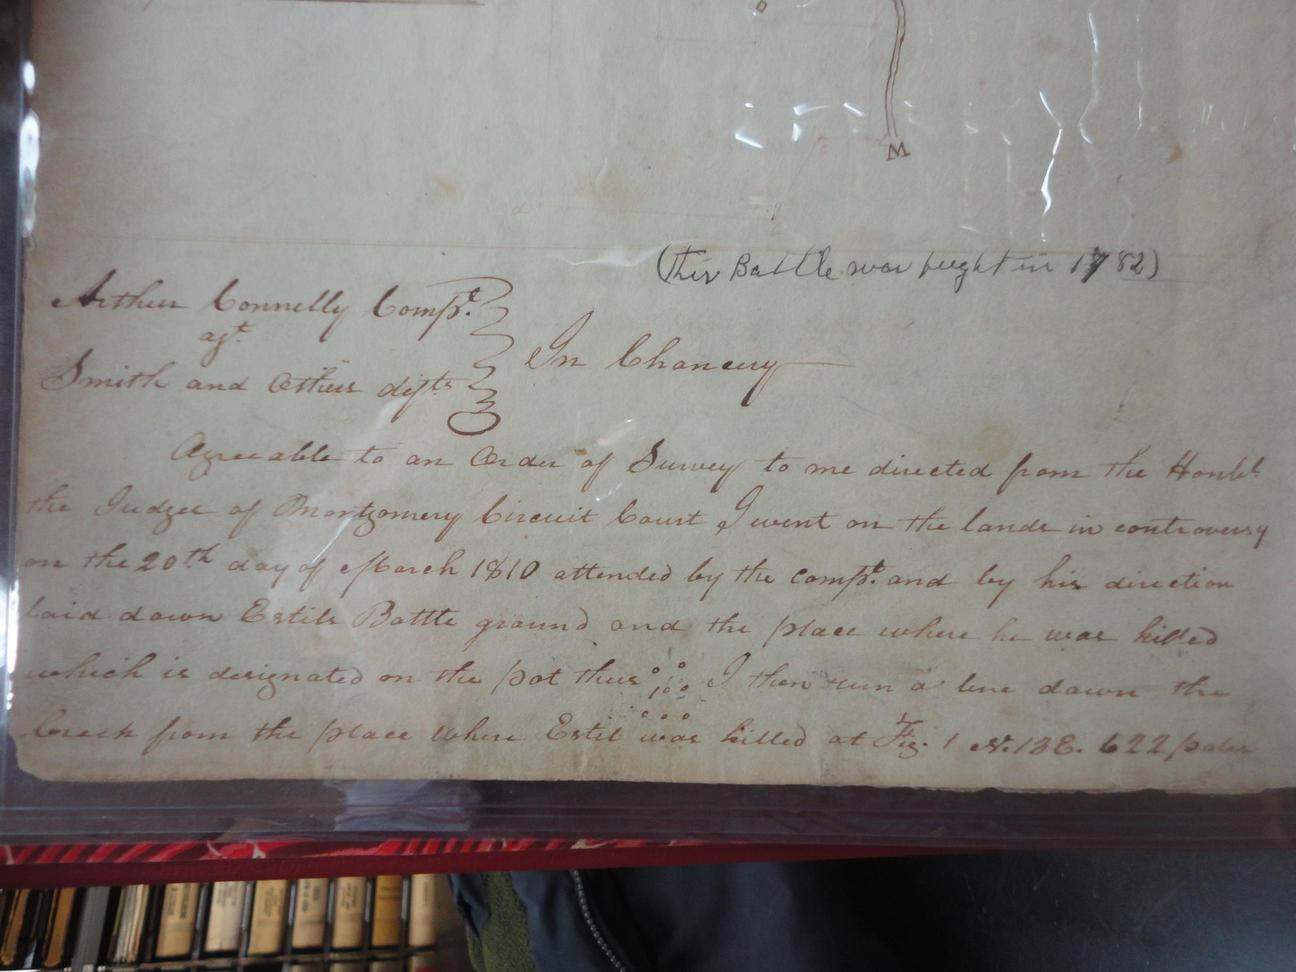 M
(This Battle was fought in 1782)
Arthur Connelly Compt.
agt.
Smith and Others defts
In Chancery
Agreeable to an Order of Survey to me directed from the Honbl.
the Judges of Montgomery Circuit Court I went on the lands in controversy
on the 20th day of March 1810 attended by the compt. and by his direction
laid down Estils Battle ground and the place where he was killed
which is designated on the plot thus I then run a line down the
Creek from the place where Estil was killed at Fig. 1 N. 13 E. 622 poles